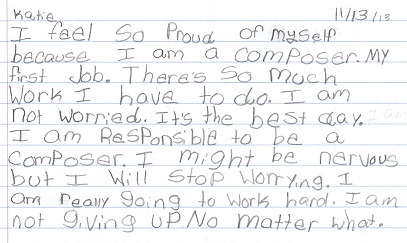 Katie 11/13/13
I feel So Proud of myself
because I am a composer. My
first Job. There's So much
Work I have to do. I am
not worried. It's the best day. I am
I am Responsible to be a
Composer. I might be nervous
but I Will Stop Worrying. I
am really going to work hard. I am
not giving up No matter what.